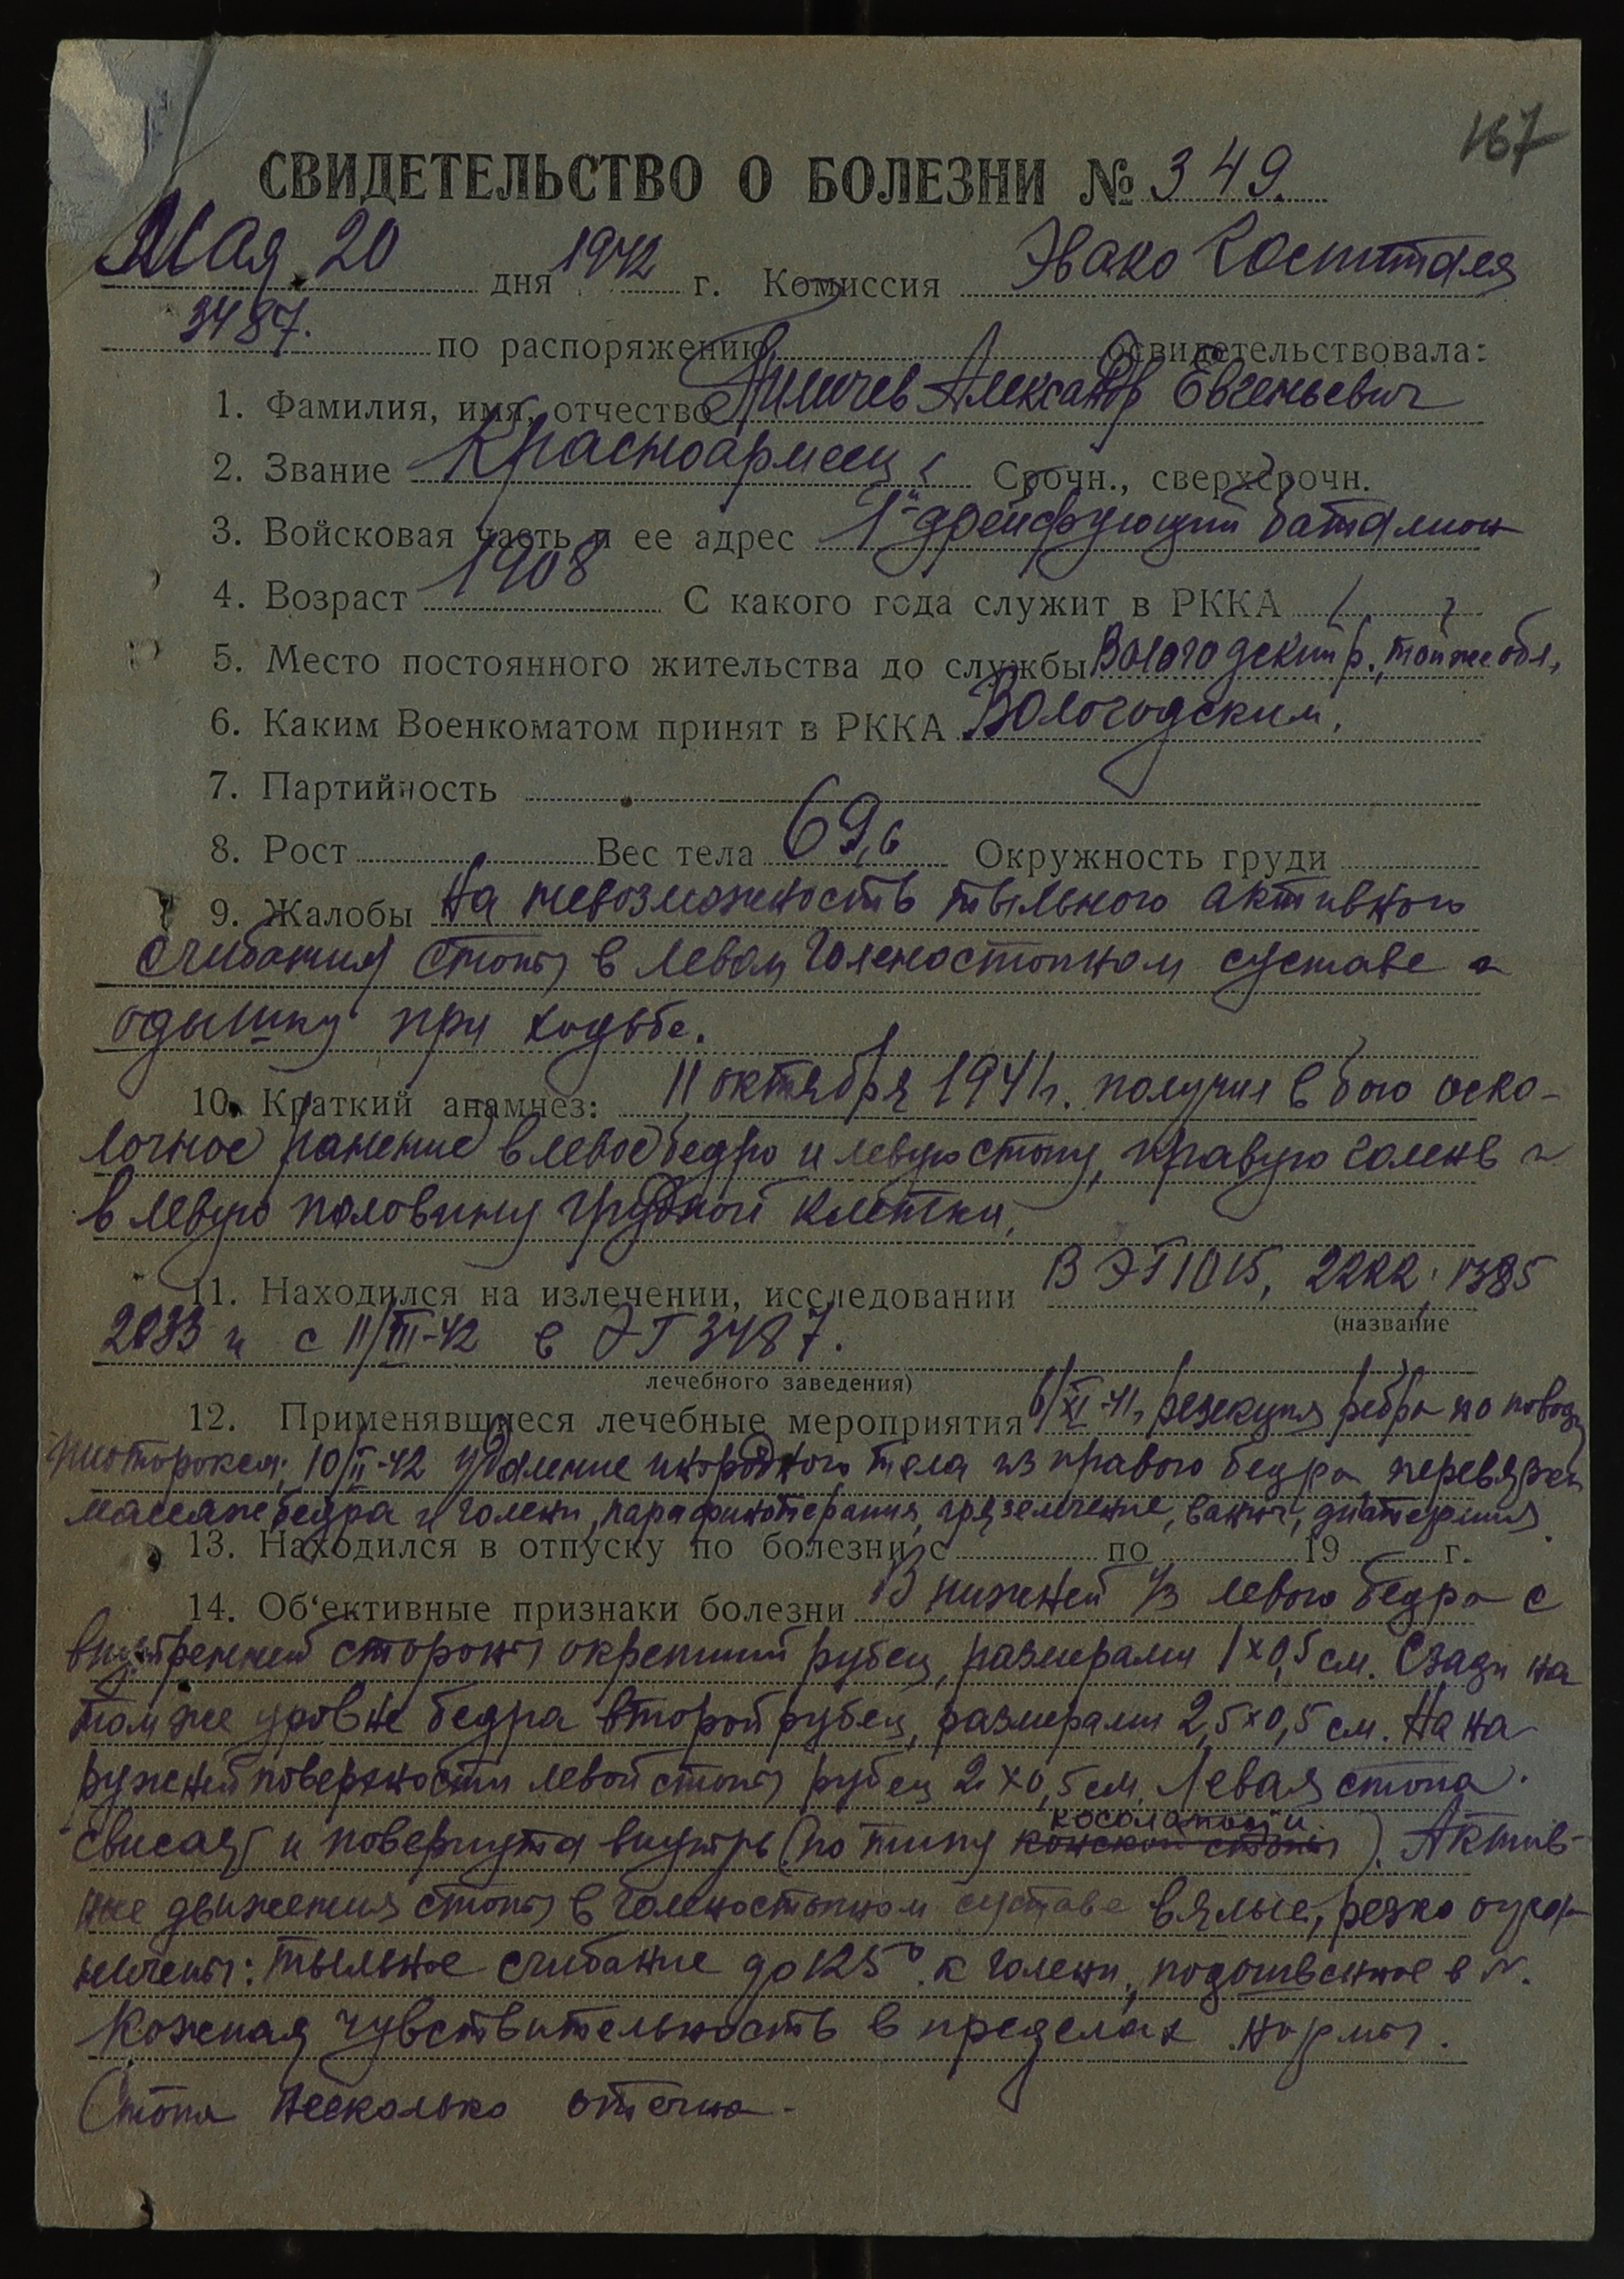 167
СВИДЕТЕЛЬСТВО О БОЛЕЗНИ № 349.
Мая 20 дня 1942 г. Комиссия Эвако Госпиталя
3487. по распоряжению освидетельствовала:
1. Фамилия, имя, отчество Александр Евгеньевич
2. Звание Красноармеец Срочн., сверхсрочн.
3. Войсковая часть и ее адрес 1й дрейфующий баталион
4. Возраст 1908 С какого года служит в РККА
5. Место постоянного жительства до службы Вологодский р. той же обл.
6. Каким Военкоматом принят в РККА Вологодским.
7. Партийность
8. Рост Вес тела 69,6 Окружность груди
9. Жалобы на невозможность тыльного активного
сгибания стопы в левом голеностопном суставе и
одышку при ходьбе.
10. Краткий анамнез: 11 октября 1941 г. получил в бою оско-
лочное ранение в левое бедро и левую стопу, правую голень и
в левую половину грудной клетки.
11. Находился на излечении, исследовании В ЭГ 1015, 2222, 1385
(название
2033 и с 11/III-42 в ЭГ 3487.
лечебного заведения)
12. Применявшиеся лечебные мероприятия 6/XI-41г. резекция ребра по поводу
пиоторокса; 10/II-42 удаление инородного тела из правого бедра, перевязки
массаж бедра и голени, парафинотерапия, грязелечение, ванны, диатермия
13. Находился в отпуску по болезни с по 19 г.
14. Об‘ективные признаки болезни В нижней 1/3 левого бедра с
внутренней стороны окрепший рубец, размерами 1х0,5 см. Сзади на
том же уровне бедра второй рубец, размерами 2,5х0,5 см. На на
ружней поверхности левой стопы рубец 2х0,5 см. Левая стопа
косолапости
свисает и повернута внутрь (по типу конской стопы). Актив-
ные движения стопы в голеностопном суставе вялые, резко огра-
ничены: тыльное сгибание до 125° к голени, подошвенное в N.
Кожная чувствительность в пределах нормы.
Стопа несколько отечна.